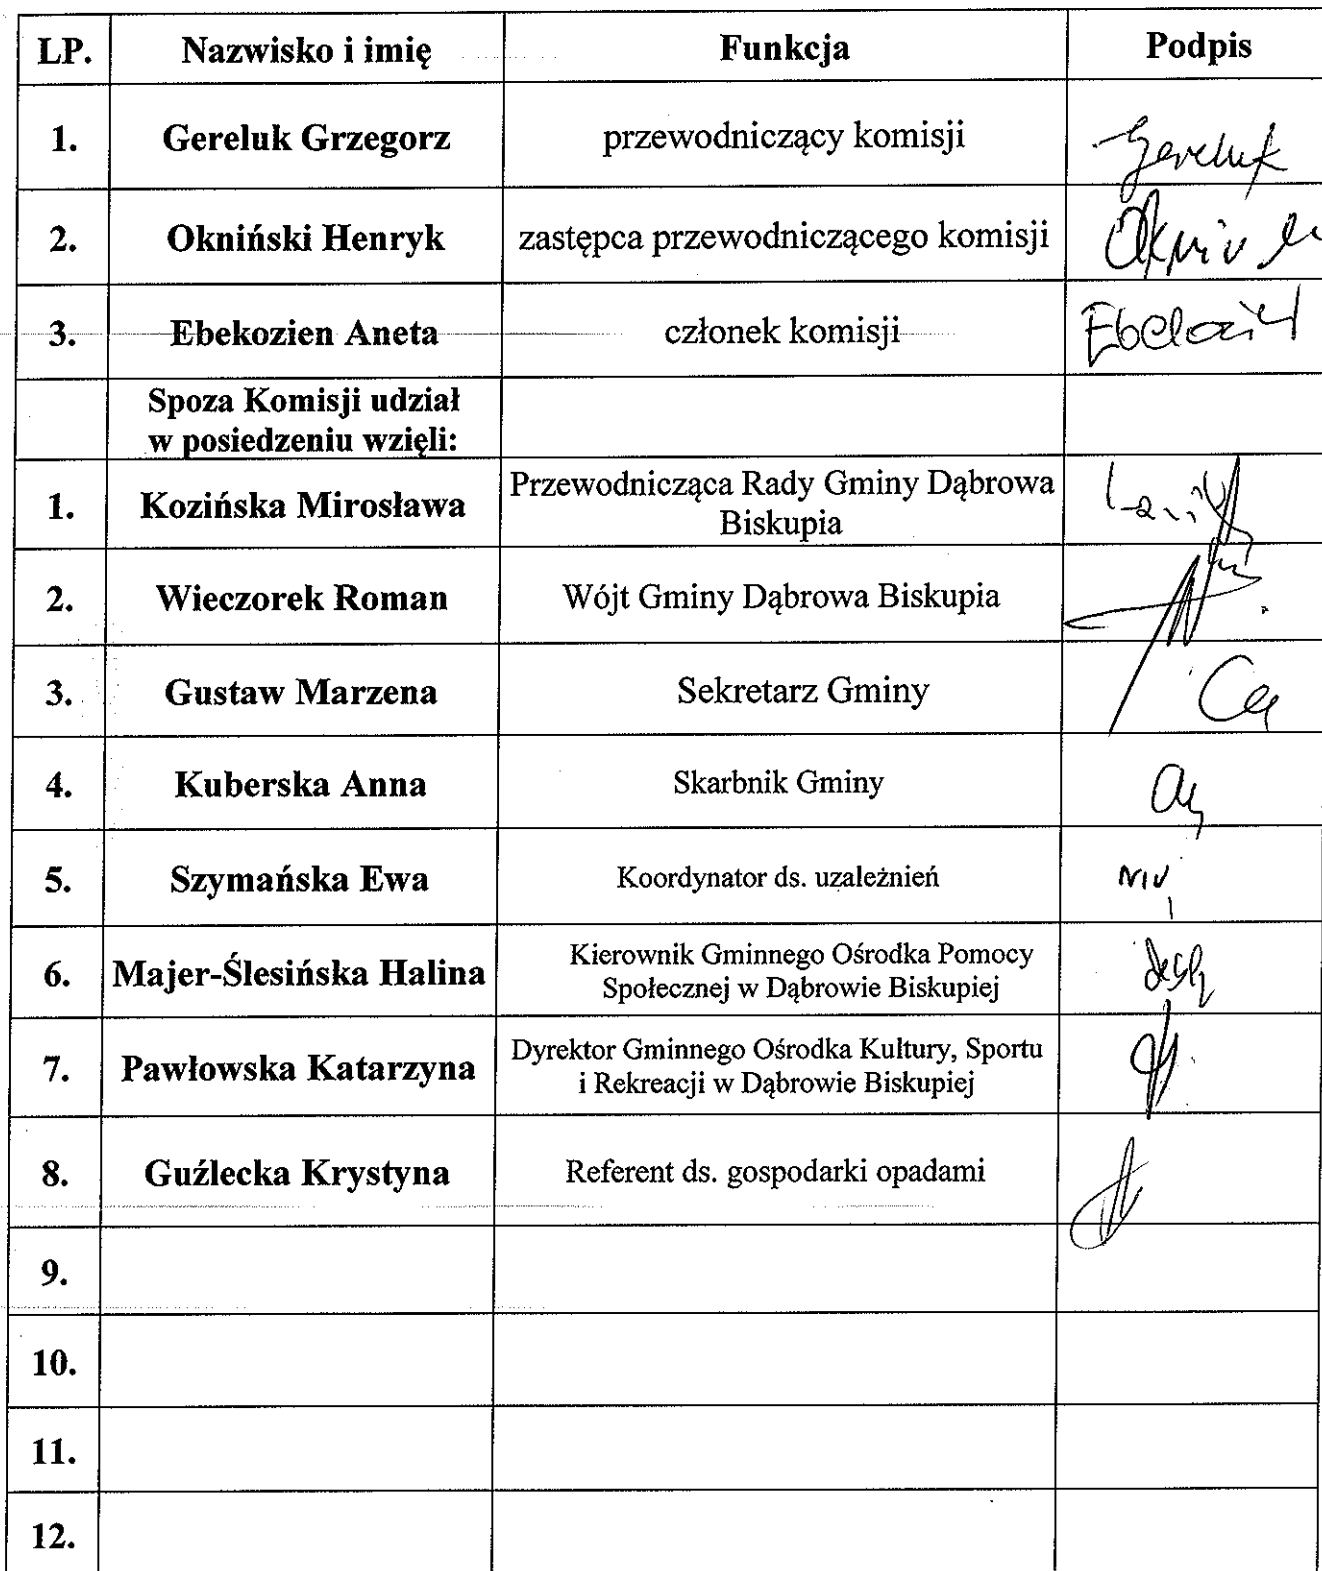 LP. Nazwisko i imię Funkcja Podpis
1. Gereluk Grzegorz przewodniczący komisji Gereluk
2. Okniński Henryk zastępca przewodniczącego komisji
3. Ebekozien Aneta członek komisji
Spoza Komisji udział
w posiedzeniu wzięli:
1. Kozińska Mirosława Przewodnicząca Rady Gminy Dąbrowa
Biskupia
2. Wieczorek Roman Wójt Gminy Dąbrowa Biskupia
3. Gustaw Marzena Sekretarz Gminy
4. Kuberska Anna Skarbnik Gminy
5. Szymańska Ewa Koordynator ds. uzależnień
6. Majer-Ślesińska Halina Kierownik Gminnego Ośrodka Pomocy
Społecznej w Dąbrowie Biskupiej
7. Pawłowska Katarzyna Dyrektor Gminnego Ośrodka Kultury, Sportu
i Rekreacji w Dąbrowie Biskupiej
8. Guźlecka Krystyna Referent ds. gospodarki opadami
9.
10.
11.
12.